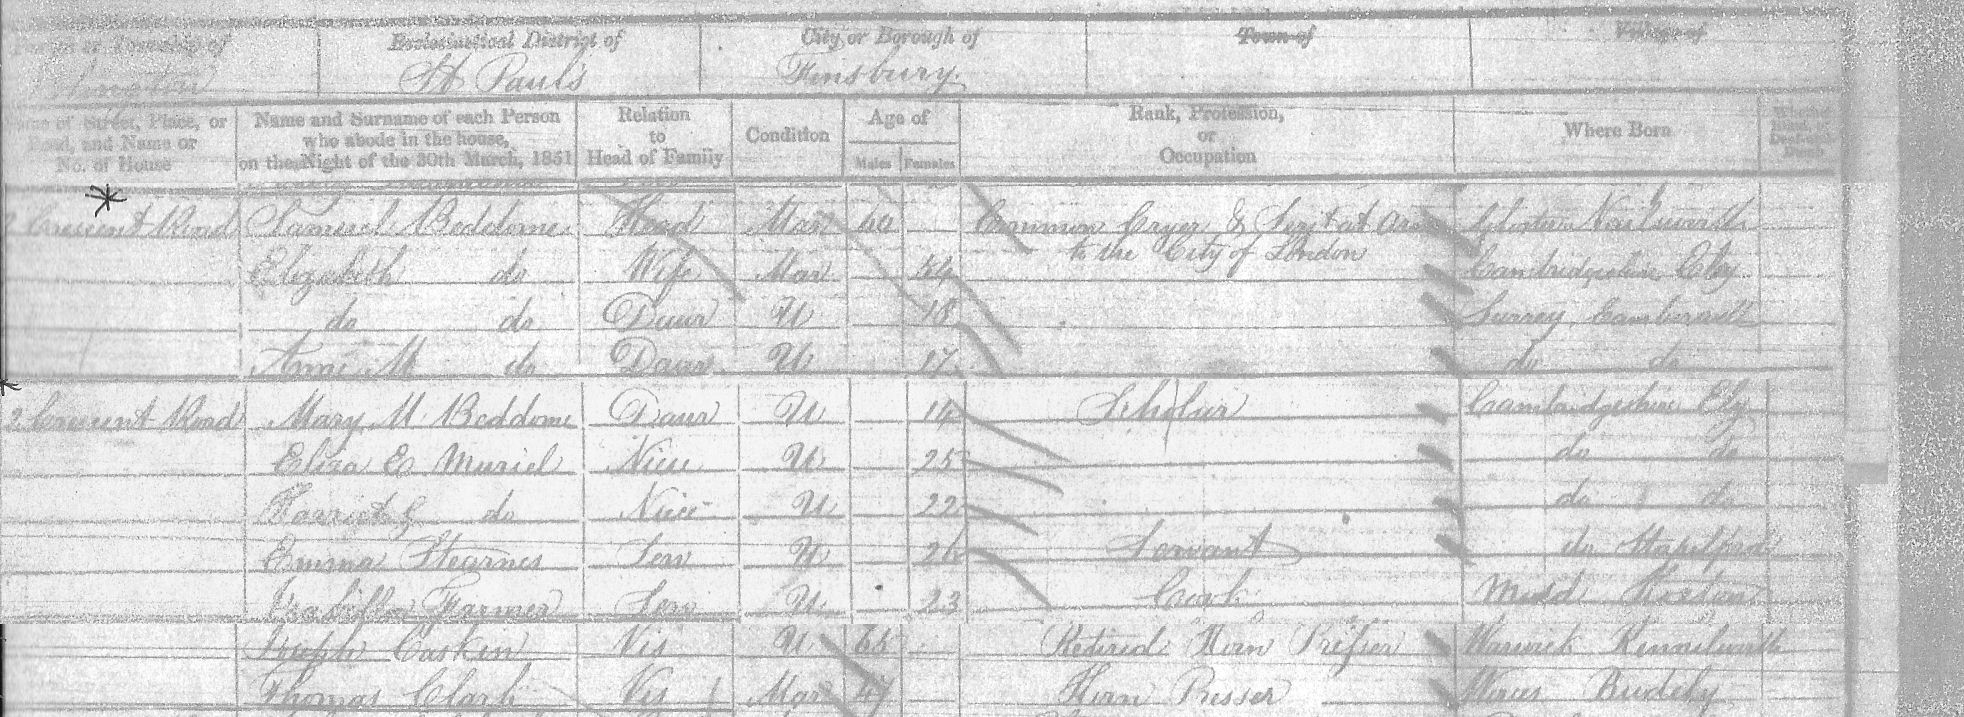 Parish or Township of Ecclesiastical District of City or Borough of Town of Village of
Islington St Paul's Finsbury
Name of Street, Place, or Road, and Name or No. of House
Name and Surname of each Person who abode in the house, on the Night of the 30th March, 1851
Relation to Head of Family
Condition
Age of
Males Females
Rank, Profession, or Occupation
Where Born
2 Crescent Road Samuel Beddome Head Mar 60 Common Cryer & Serjt at Arms
to the City of London
Elizabeth do Wife Mar 54 Cambridgeshire Ely
do do Daur U 18 Surrey Camberwell
Ann M do Daur U 17 do do
2 Crescent Road Mary M Beddome Daur U 14 Scholar Cambridgeshire Ely
Eliza E Muriel Niece U 25 do do
Harriet G do Niece U 22 do do
Emma Stearnes Serv U 26 Servant do
Farmer Serv U 23 Cook
Joseph Caskin Vis U 65 Retired Horn Presser Warwick Kennilworth
Thomas Clark Vis Mar 47 Horn Presser